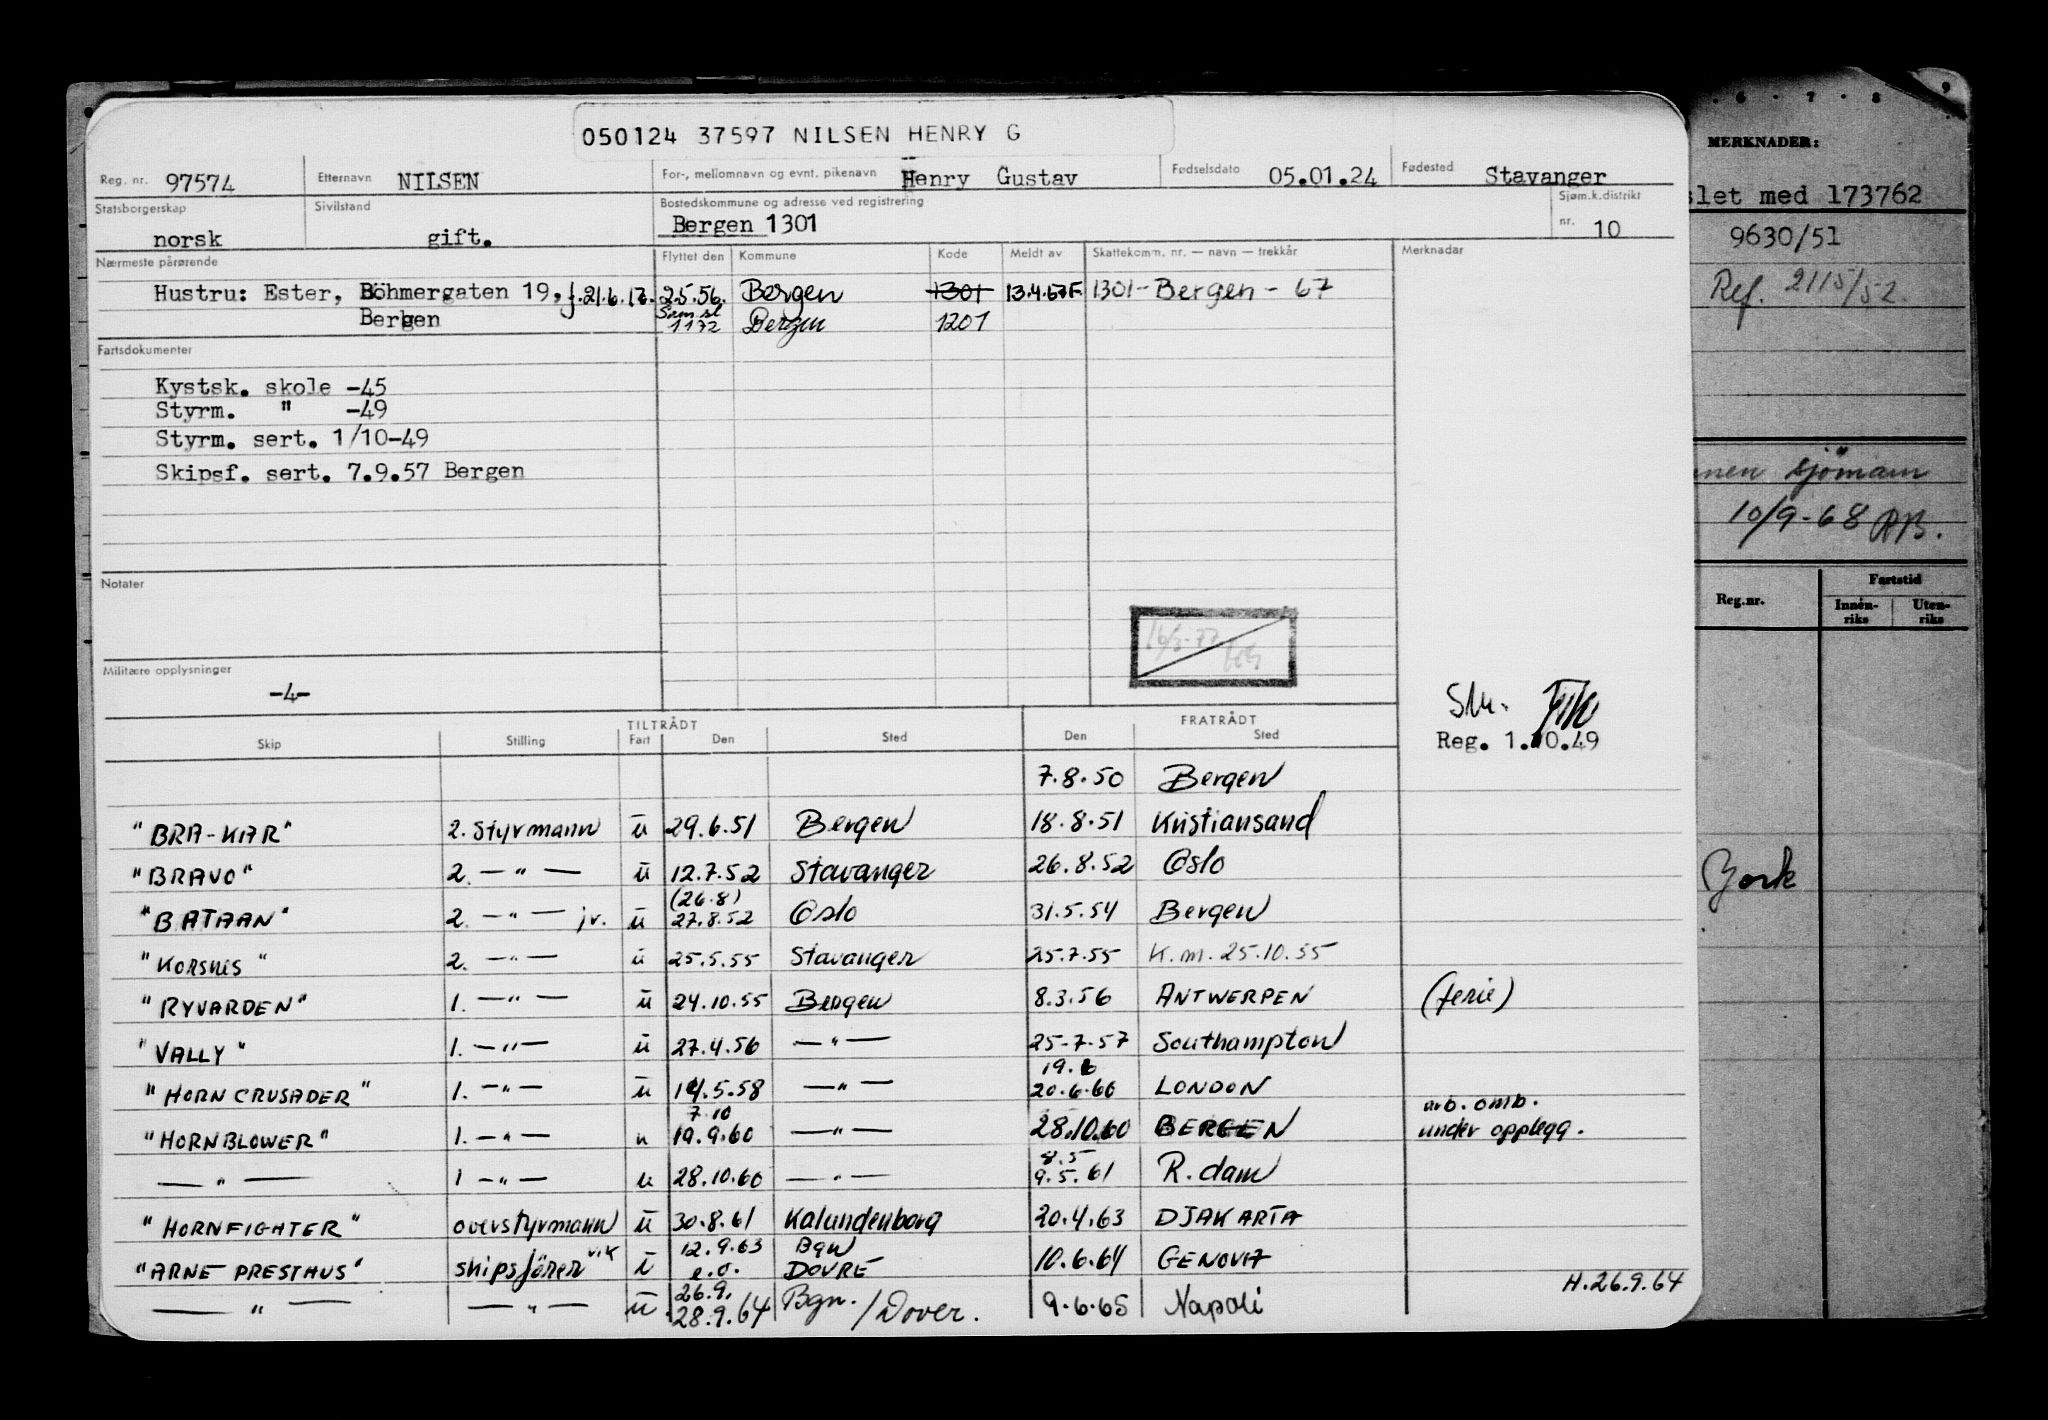 050124 37597 NILSEN HENRY G
Reg. nr. 97574 Etternavn NILSEN For-, mellomnavn og evnt. pikenavn Henry Gustav Fødselsdato 05.01.24 Fødested Stavanger
Statsborgerskap norsk Sivilstand gift. Bostedskommune og adresse ved registrering Bergen 1301 Sjøm.k.distrikt nr. 10
Nærmeste pårørende Flyttet den Kommune Kode Meldt av Skattekomm. nr. — navn — trekkår Merknadar
Hustru: Ester, Böhmergaten 19, f. 21.6.17. 2.5.56. Bergen 1301 13.4.67F 1301 - Bergen - 67
Bergen 1172 Bergen 1201
Fartsdokumenter
Kystsk. skole -45
Styrm. " -49
Styrm. sert. 1/10-49
Skipsf. sert. 7.9.57 Bergen
Notater
16/3-77
Militære opplysninger
-4-
TILTRÅDT FRATRÅDT
Skip Stilling Fart Den Sted Den Sted
Reg. 1.10.49
7.8.50 Bergen
"BRA-KAR" 2. Styrmann u 29.6.51 Bergen 18.8.51 Kristiansand
"BRAVO" 2. — " — u 12.7.52 Stavanger 26.8.52 Oslo
(26.8)
"BATAAN" 2. — " — jr. u 27.8.52 Oslo 31.5.54 Bergen
"KORSNES" 2. — " — u 25.5.55 Stavanger 25.7.55 K.m. 25.10.55
"RYVARDEN" 1. — " — u 24.10.55 Bergen 8.3.56 ANTWERPEN (ferie)
"VALLY" 1. — " — u 27.4.56 — " — 25-7-57 Southampton
19.6
"HORN CRUSADER" 1. — " — u 14.5.58 — " — 20.6.60 LONDON
7.10 arb. omb.
"HORNBLOWER" 1. — " — u 19.9.60 — " — 28.10.60 BERGEN under opplegg.
8.5
— " — 1 — " — u 28.10.60 — " — 9.5.61 R.dam
"HORNFIGHTER" overstyrmann u 30.8.61 Kalundenborg 20.4.63 DJAKARTA
12.9.63 Bgn
"ARNE PRESTHUS" skipsfører vik u e.o. DOVRE 10.6.64 GENOVA
H.26.9.64
26.9.
— " — — " — u 28.9.64 Bgn. / Dover. 9.6.65 Napoli
6 · 7 · 8 · 9
MERKNADER:
slet med 173762
9630/51
Ref. 2115/52
nnen sjömann
10/9-68 RB.
Reg.nr. Fartstid
Innen-riks Uten-riks
York